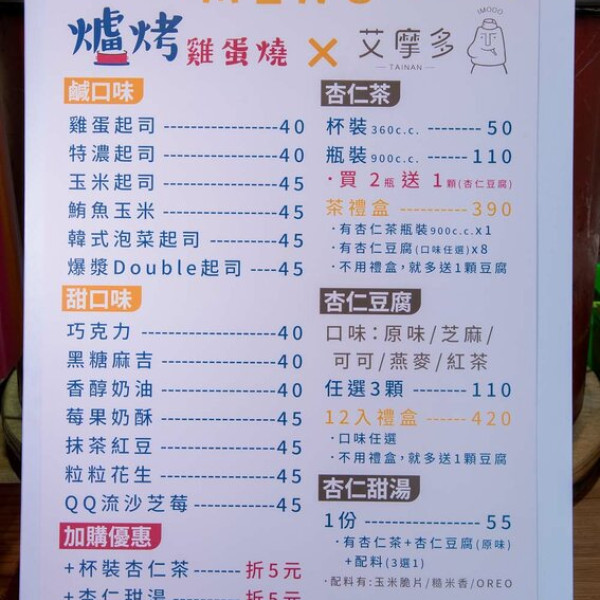 MENU
爐烤雞蛋燒 × 艾摩多
IMODO
TAINAN
鹹口味
雞蛋起司 ----------------- 40
特濃起司 ----------------- 40
玉米起司 ----------------- 45
鮪魚玉米 ----------------- 45
韓式泡菜起司 ---------- 45
爆漿Double起司 ---- 45
甜口味
巧克力 -------------------- 40
黑糖麻吉 ----------------- 40
香醇奶油 ----------------- 40
莓果奶酥 ----------------- 45
抹茶紅豆 ----------------- 45
粒粒花生 ----------------- 45
QQ流沙芝莓 ----------- 45
加購優惠
+杯裝杏仁茶------- 折5元
+杏仁甜湯---------- 折5元
杏仁茶
杯裝 360c.c. -------- 50
瓶裝 900c.c. ------- 110
·買 2瓶 送 1顆(杏仁豆腐)
茶禮盒 ----------- 390
·有杏仁茶瓶裝900c.c.x1
·有杏仁豆腐(口味任選)x8
·不用禮盒,就多送1顆豆腐
杏仁豆腐
口味:原味/芝麻/
可可/燕麥/紅茶
任選3顆 -------- 110
12入禮盒 ------ 420
·口味任選
·不用禮盒,就多送1顆豆腐
杏仁甜湯
1份 ----------------- 55
·有杏仁茶+杏仁豆腐(原味)
+配料(3選1)
·配料有:玉米脆片/糙米香/OREO